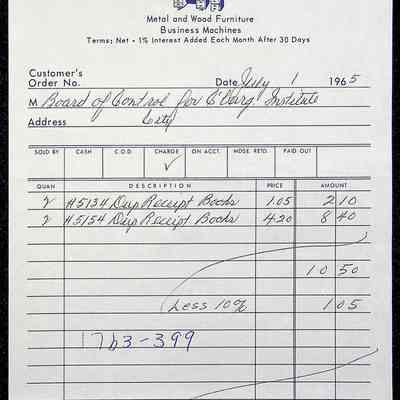 Metal and Wood Furniture
Business Machines
Terms; Net • 1% Interest Added Each Month After 30 Days
Customer's
Order No. Date July 1 1965
M Board of Control for C'burg Institute
Address City
SOLD BY CASH C.O.D. CHARGE ON ACCT. MDSE. RETD. PAID OUT
✓
QUAN DESCRIPTION PRICE AMOUNT
2 #5134 Dup Receipt Books 1.05 2 10
2 #5154 Dup Receipt Books 4.20 8 40
10 50
Less 10% 1 05
1763-399